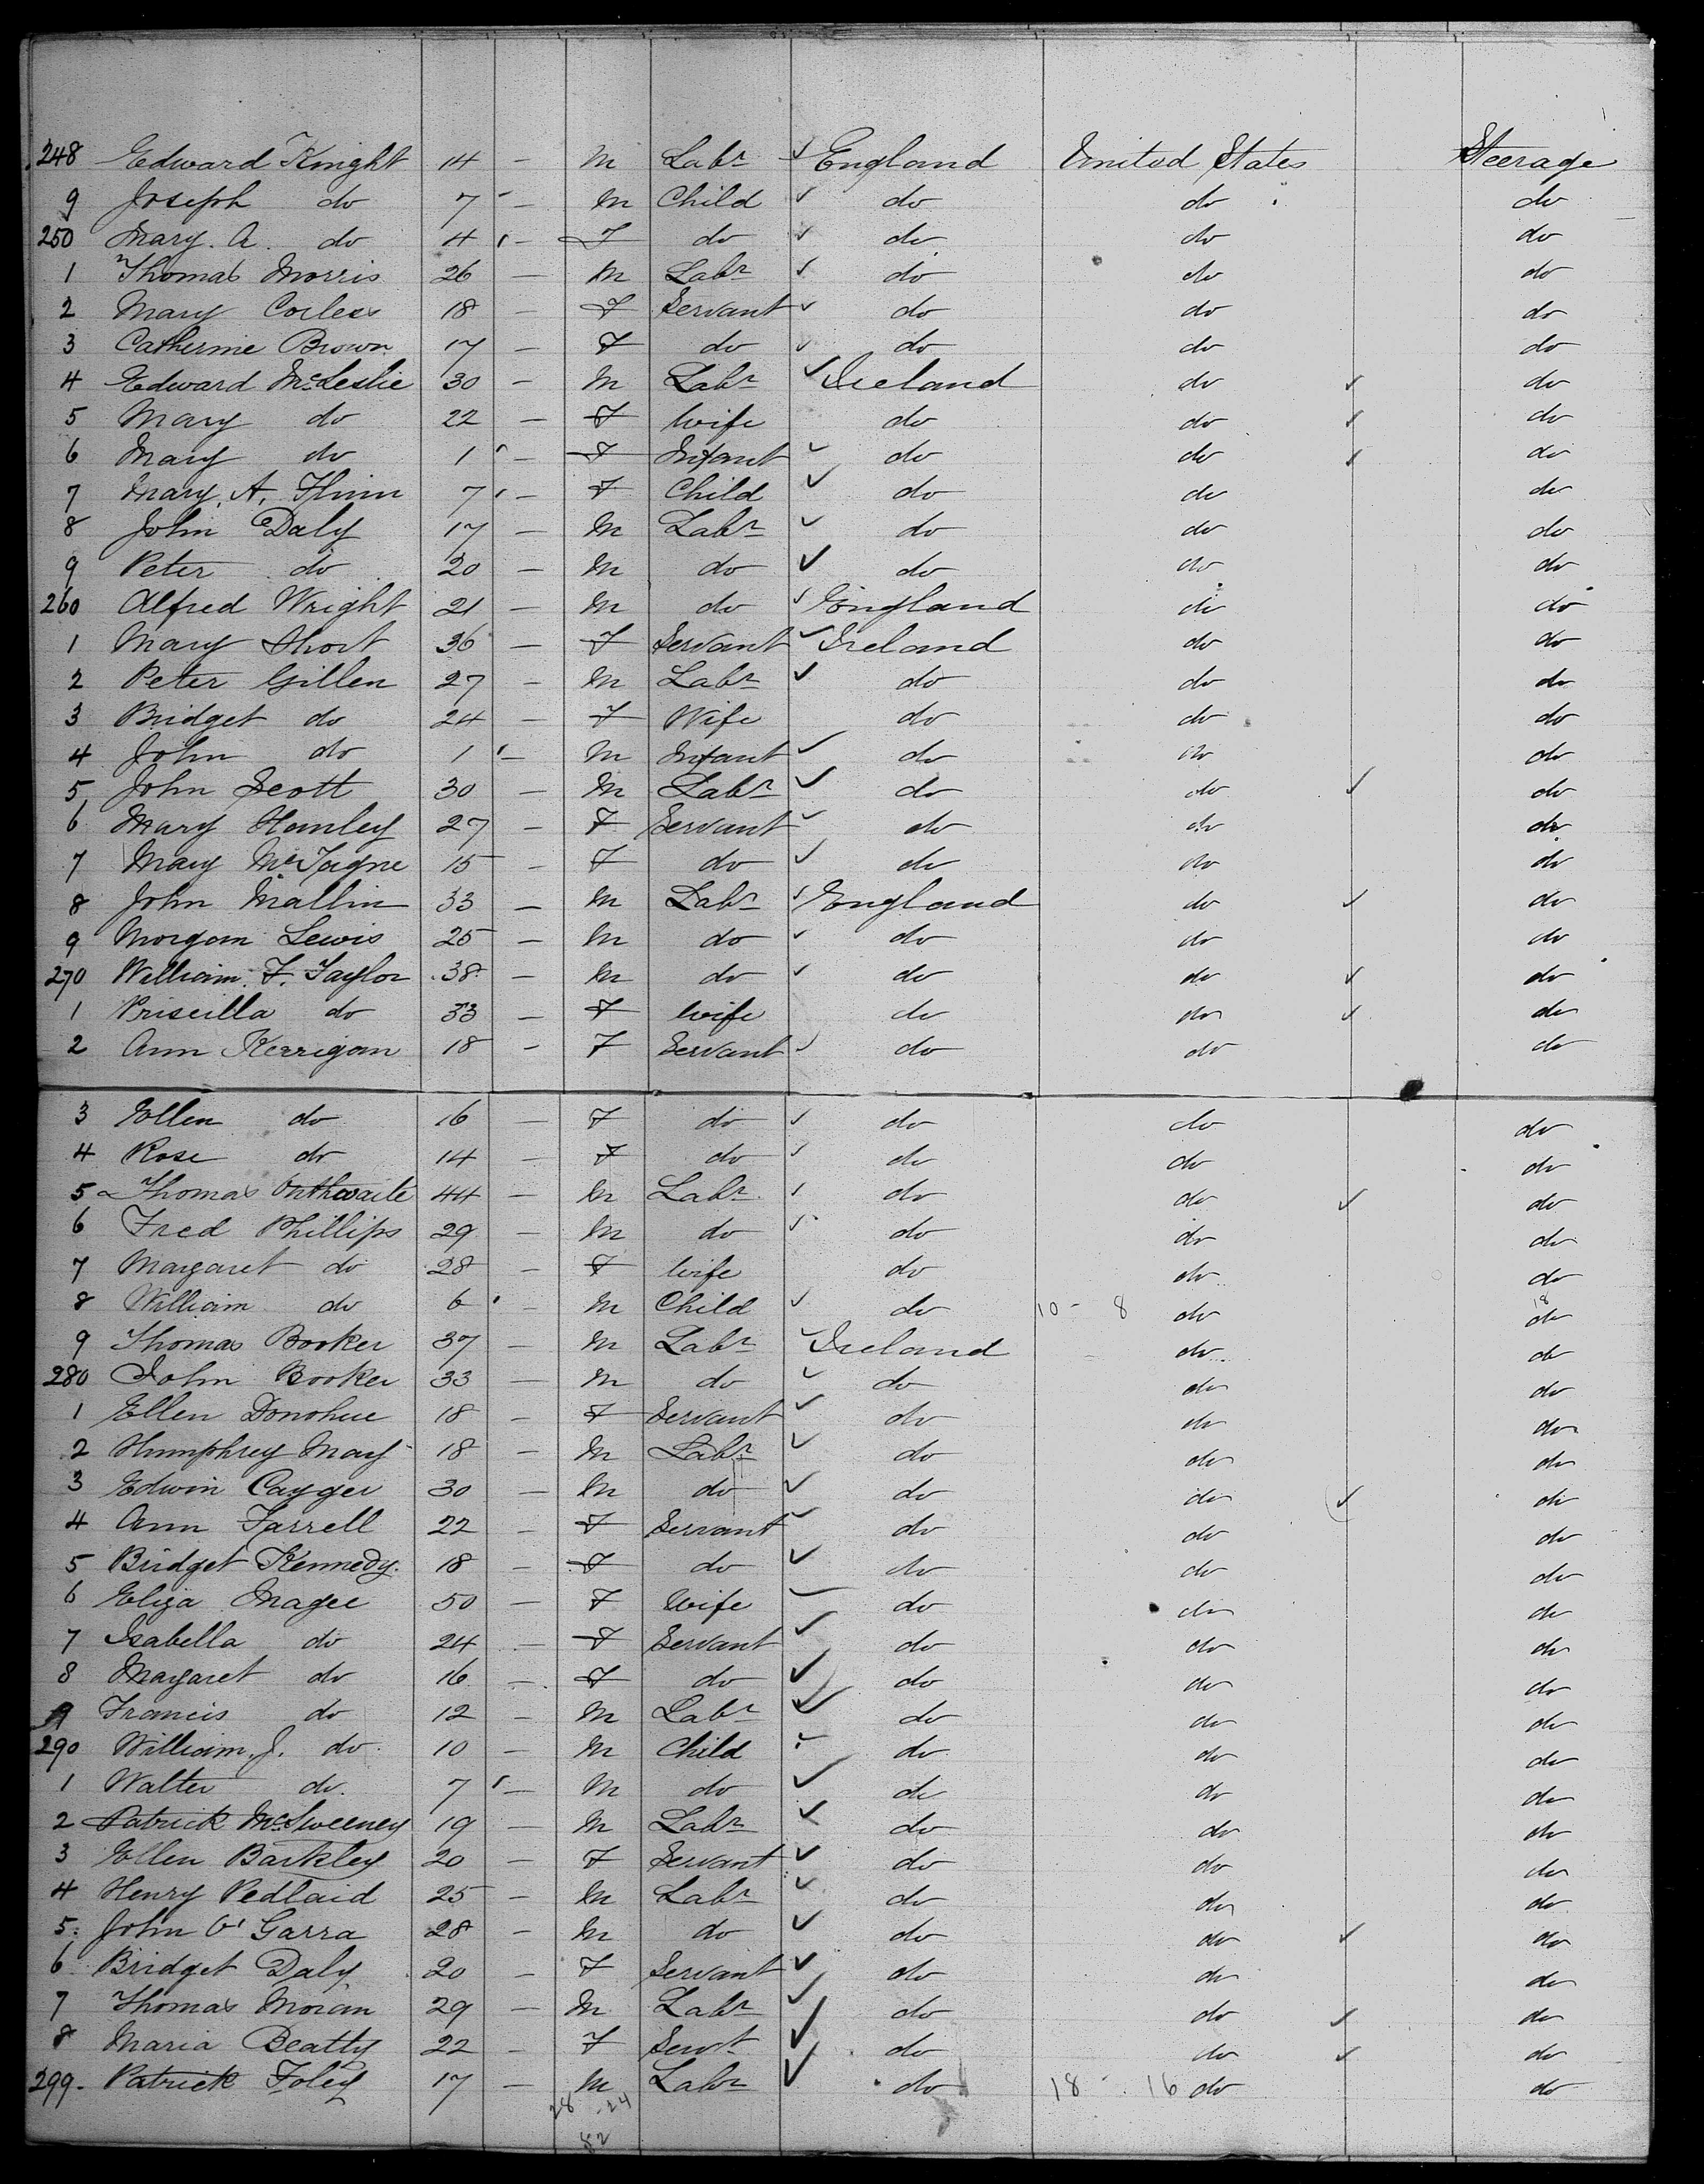 248 Edward Knight 14 — M Labr ✓ England United States Steerage
9 Joseph do 7 — M Child ✓ do do do
250 Mary. A. do 4 — F do ✓ do do do
1 Thomas Morris 26 — M Labr ✓ do do do
2 Mary Corless 18 — F Servant ✓ do do do
3 Catherine Brown 17 — F do ✓ do do do
4 Edward McLeslie 30 — M Labr ✓ Ireland do ✓ do
5 Mary do 22 — F Wife do do ✓ do
6 Mary do 1 — F Infant ✓ do do ✓ do
7 Mary. A. Flinn 7 — F Child ✓ do do do
8 John Daly 17 — M Labr ✓ do do do
9 Peter do 20 — M do ✓ do do do
260 Alfred Wright 21 — M do ✓ England do do
1 Mary Short 36 — F Servant ✓ Ireland do do
2 Peter Gillen 27 — M Labr ✓ do do do
3 Bridget do 24 — F Wife do do do
4 John do 1 — M Infant ✓ do do do
5 John Scott 30 — M Labr ✓ do do ✓ do
6 Mary Hanley 27 — F Servant ✓ do do do
7 Mary 15 — F do ✓ do do do
8 John Mallin 33 — M Labr ✓ England do ✓ do
9 Morgan Lewis 25 — M do ✓ do do do
270 William. F. Taylor 38 — M do ✓ do do ✓ do
1 Priscilla do 33 — F Wife do do ✓ do
2 Ann Kerrigan 18 — F Servant ✓ do do do
3 Ellen do 16 — F do ✓ do do do
4 Rose do 14 — F do ✓ do do do
5 Thomas 44 — M Labr ✓ do do ✓ do
6 Fred Phillips 29 — M do ✓ do do do
7 Margaret do 28 — F Wife do do do
8 William do 6 — M Child ✓ do 10 - 8 do 18 do
9 Thomas Booker 37 — M Labr ✓ Ireland do do
280 John Booker 33 — M do ✓ do do do
1 Ellen Donohue 18 — F Servant ✓ do do do
2 Humphrey May 18 — M Labr ✓ do do do
3 Edwin Cayger 30 — M do ✓ do do ✓ do
4 Ann Farrell 22 — F Servant ✓ do do do
5 Bridget Kennedy. 18 — F do ✓ do do do
6 Eliza Magee 50 — F Wife ✓ do do do
7 Isabella do 24 — F Servant ✓ do do do
8 Margaret do 16 — F do ✓ do do do
9 Francis do 12 — M Labr ✓ do do do
290 William. J. do 10 — M Child ✓ do do do
1 Walter do. 7 — M do ✓ do do do
2 Patrick McSweeney 19 — M Labr ✓ do do do
3 Ellen Barkley 20 — F Servant ✓ do do do
4 Henry Pedlaid 25 — M Labr ✓ do do do
5 John O'Garra 28 — M do ✓ do do ✓ do
6 Bridget Daly 20 — F Servant ✓ do do do
7 Thomas Moran 29 — M Labr ✓ do do ✓ do
8 Maria Beatty 22 — F Servt ✓ do do ✓ do
299. Patrick Foley 17 — M Labr ✓ do 18 - 16 do do
28 - 24
52